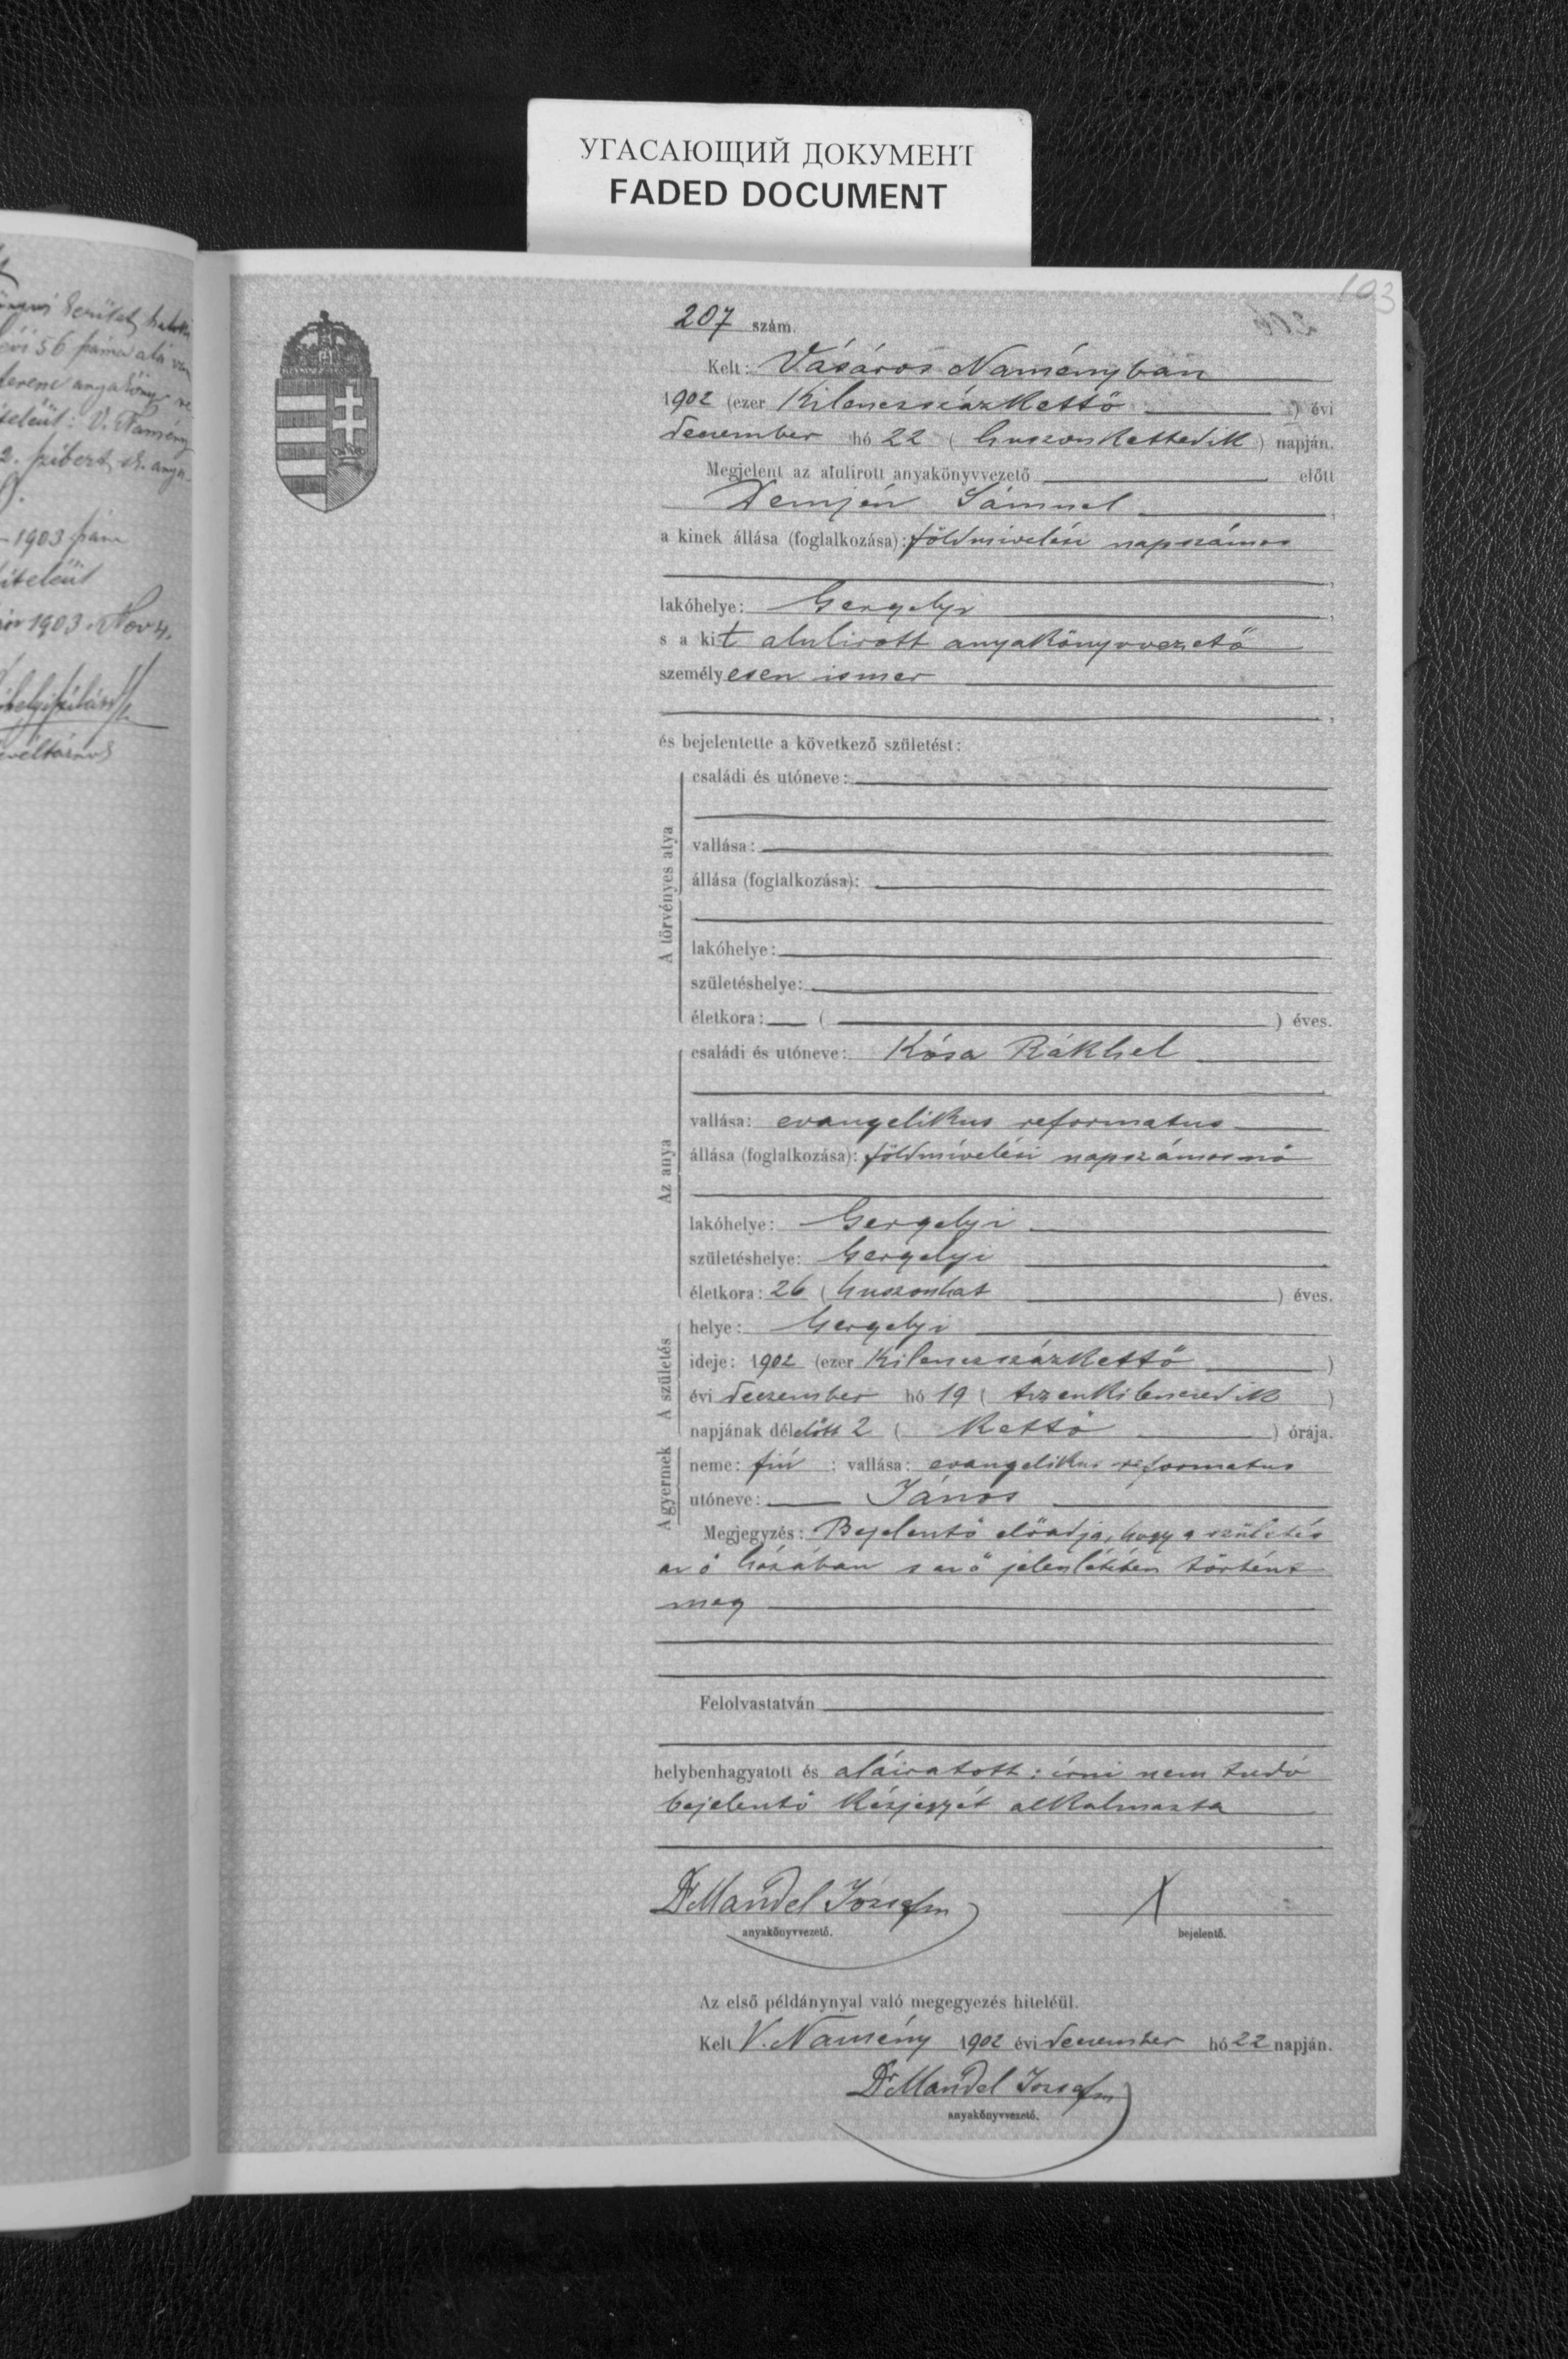 УГАСАЮЩИЙ ДОКУМЕНТ
FADED DOCUMENT
103
207 szám.
Kelt: Vásáros Naményban
1902 (ezer kilenczszázkettő) évi
deczember hó 22 (huszonkettedik) napján.
Megjelent az alulirott anyakönyvvezető előtt
Demjén Sámuel,
a kinek állása (foglalkozása): földmivelési napszámos
lakóhelye: Gergelyi,
s a kit alulirott anyakönyvvezető
személyesen ismer
és bejelentette a következő születést:
A törvényes atya
családi és utóneve:
vallása:
állása (foglalkozása):
lakóhelye:
születéshelye:
életkora: ( ) éves.
Az anya
családi és utóneve: Kósa Rákhel
vallása: evangelikus reformatus
állása (foglalkozása): földmívelési napszámosnő
lakóhelye: Gergelyi
születéshelye: Gergelyi
életkora: 26 (huszonhat) éves.
A születés
helye: Gergelyi
ideje: 1902 (ezer kilenczszázkettő)
évi deczember hó 19 (tizenkilenczedik)
napjának délelőtt 2 (kettő) órája.
A gyermek
neme: fiú; vallása: evangelikus reformatus
utóneve: János
Megjegyzés: Bejelentő előadja, hogy a születés
az ő házában s az ő jelenlétében történt
meg
Felolvastatván
helybenhagyatott és aláiratott: írni nem tudó
bejelentő kézjegyét alkalmazta
Dr Mandel József
X
anyakönyvvezető.
bejelentő.
Az első példánynyal való megegyezés hiteléül.
Kelt V. Namény 1902 évi deczember hó 22 napján.
Dr Mandel József
anyakönyvvezető.
1903
1903 Nov 4.